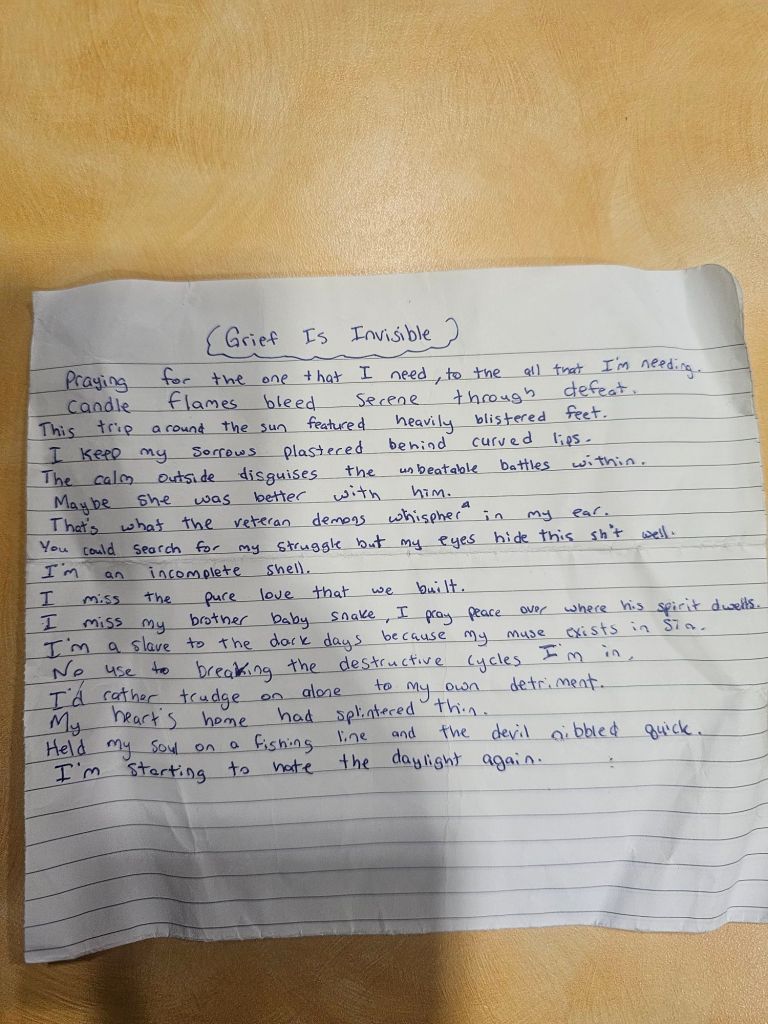 {Grief Is Invisible}
Praying for the one that I need, to the all that I'm needing.
Candle flames bleed serene through defeat.
This trip around the sun featured heavily blistered feet.
I keep my sorrows plastered behind curved lips.
The calm outside disguises the unbeatable battles within.
Maybe she was better with him.
That's what the veteran demons whispher in my ear.
You could search for my struggle but my eyes hide this sh*t well.
I'm an incomplete shell.
I miss the pure love that we built.
I miss my brother baby snake, I pray peace over where his spirit dwells.
I'm a slave to the dark days because my muse exists in sin.
No use to breaking the destructive cycles I'm in.
I'd rather trudge on alone to my own detriment.
My heart's home had splintered thin.
Held my soul on a fishing line and the devil nibbled quick.
I'm starting to hate the daylight again.